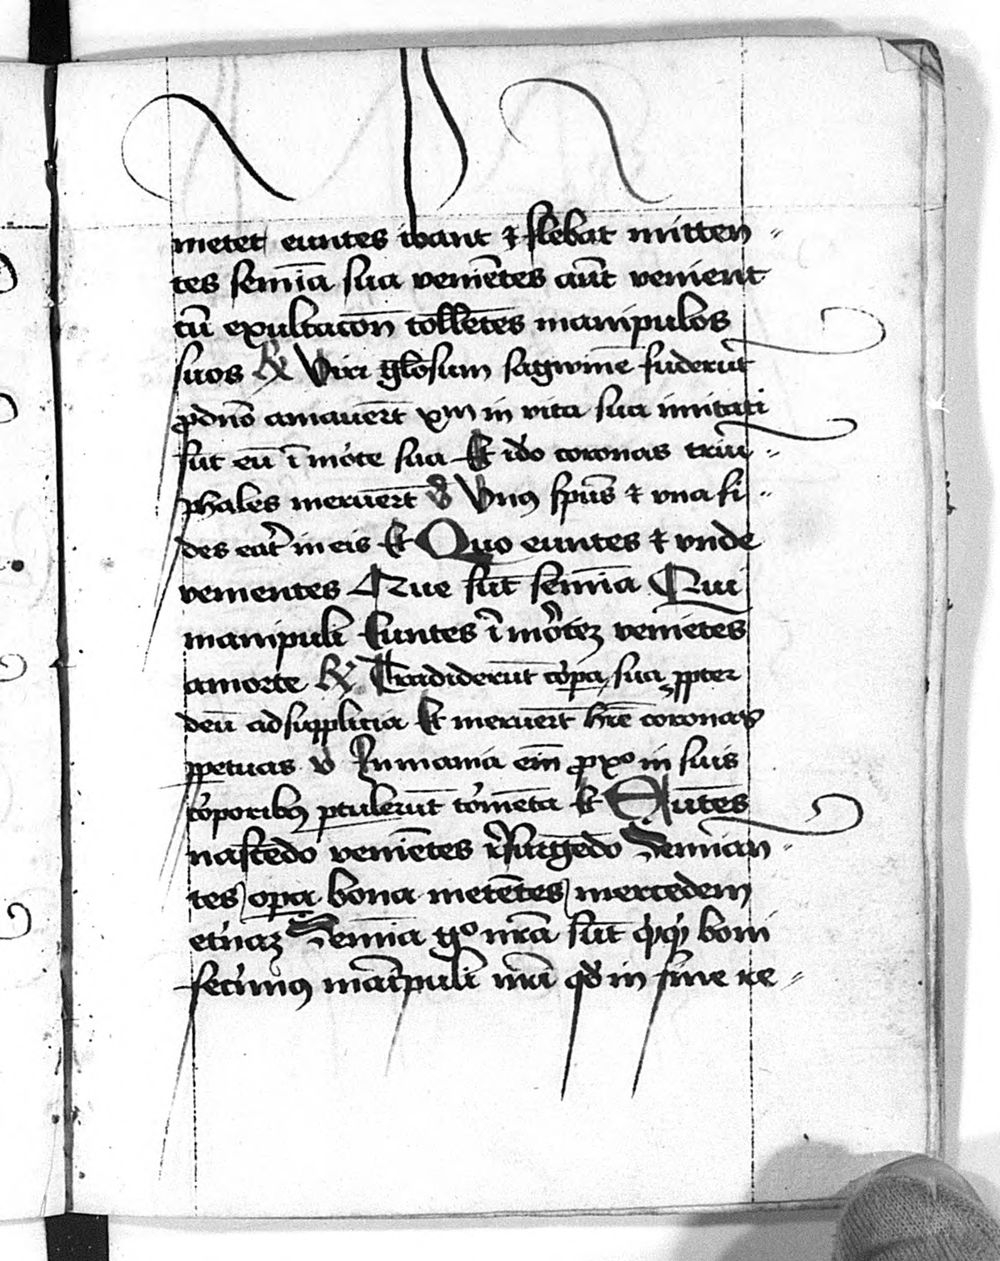 metet euntes ibant ⁊ flebat mitten
tes semīa sua veniētes aūt venient
cū exultacōn tollētes manipulos
suos ℟ Viri glōsum sagwinē fuderūt
ꝓ dn̄o amauert̄ xp̄m in vita sua imitati
sūt eū ī mōte sua Et ido coronas triu
phales meruert̄ ℣ Vnꝰ spūs ⁊ vna fi
des erāt in eis Et Quo euntes ⁊ vnde
venientes Que sūt semīa Qui
manipuli Euntes ī mōteꝫ veniētes
a morte ℟ Tradiderūt cōpa sua ꝓpter
deū ad supplicia Et meruert̄ hr̄e coronas
ꝑpetuas v Inmania em̄ ꝓ xp̄o in suis
cōporibꝰ ꝑtulerūt tōmēta Et Eūtes
nascēdo veniētes r̄surgēdo Semīan
tes opa bona metētes mercedem
et̄naꝫ Semīa gͦ nr̄a sūt q̇cq̇d boni
fecimꝰ manipuli nr̄i qd̄ in fine re